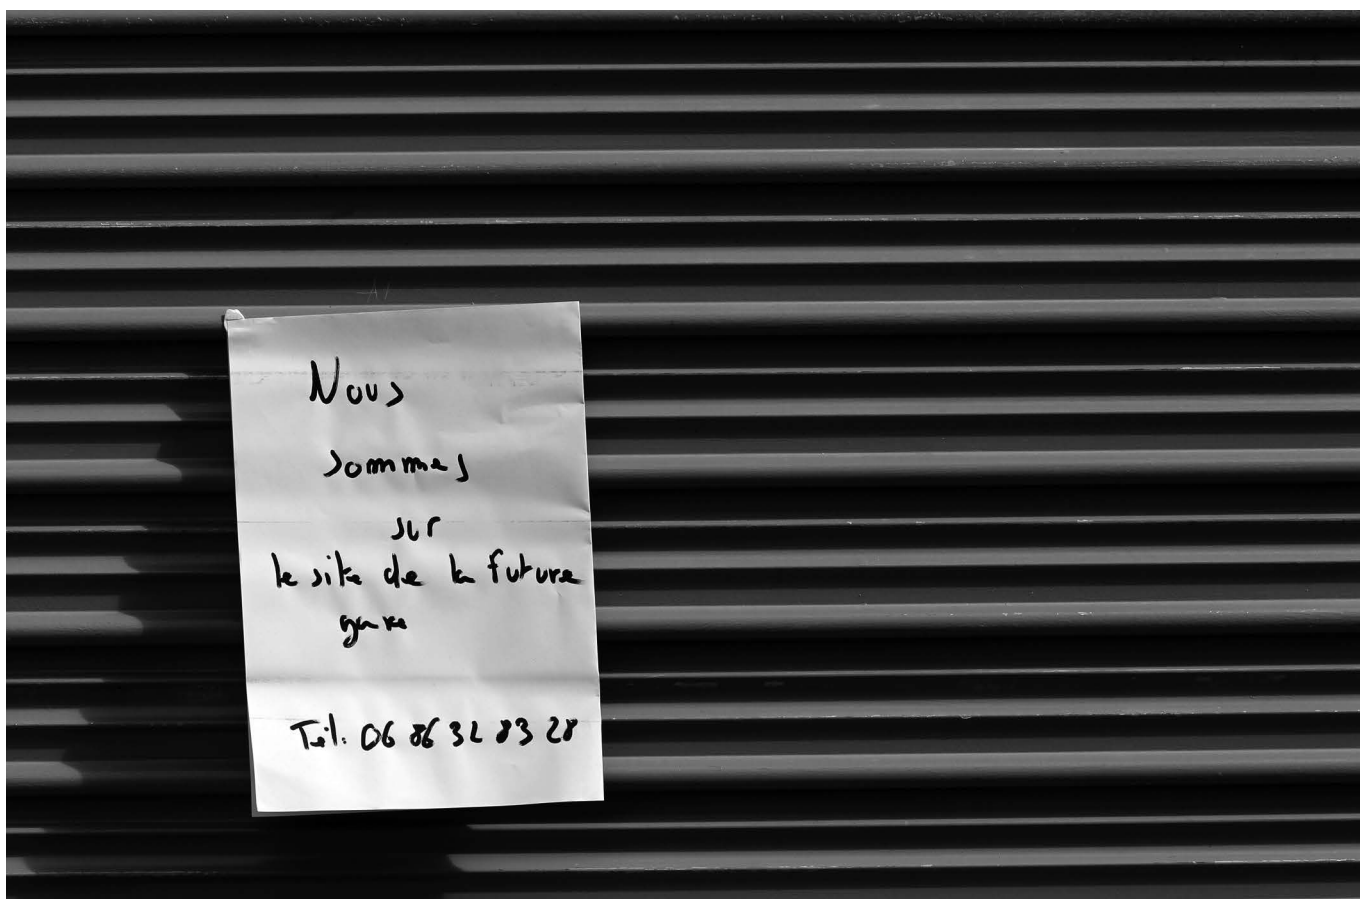 Nous
sommes
sur
le site de la future
gare
Tél: 06 86 32 83 28